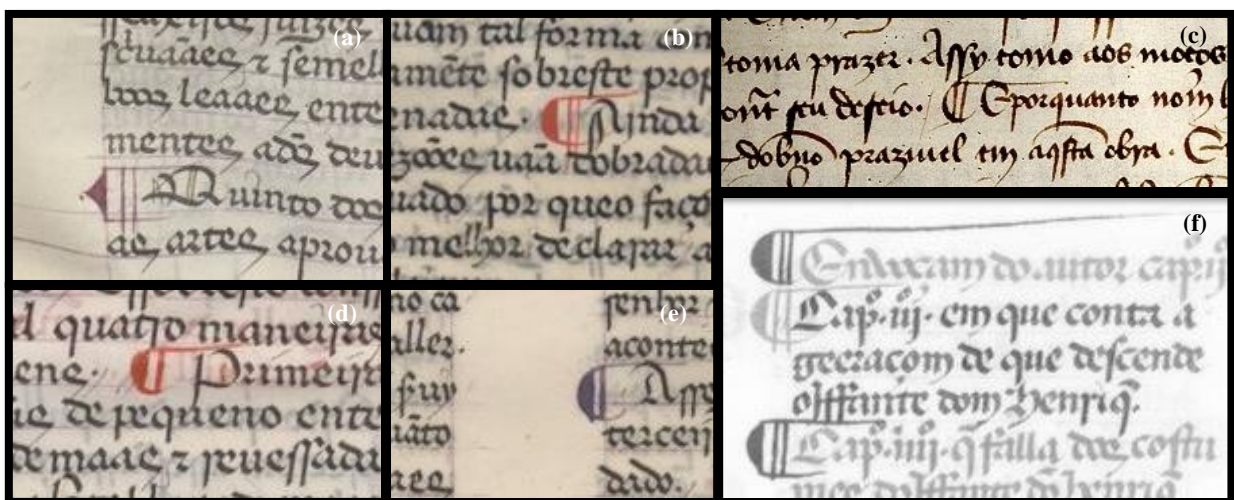 (a)
mentes adẽ deu
¶ Quinto dos
as artes aprou
(b)
uam tal forma
amẽte ſobreſte prop
enadas. ¶ Ainda
zoões uaã dobradu
uado por queo faço
melhor declarar a
(c)
toma prazer. Aſſy como aos moços
ſeu deſeio. ¶ E porquanto nom
prazivel em aqſta obra. E
(d)
l quatro maneiras
ens. ¶ Primeira
as de pequeno ente
de maas ⁊ reueſſada
(e)
no ca
aller.
fuy
uãto
aes
ſenhor
aconte
¶ Aſſy
terceir
dado.
(f)
¶ do autor capº ij
¶ Cap.º iij. em que conta a
geeraçom de que deſcende
oIffante dom Henriq̃.
¶ Cap.º iiij. q̃ falla dos coſtu
mes doIffante dõ henriq̃